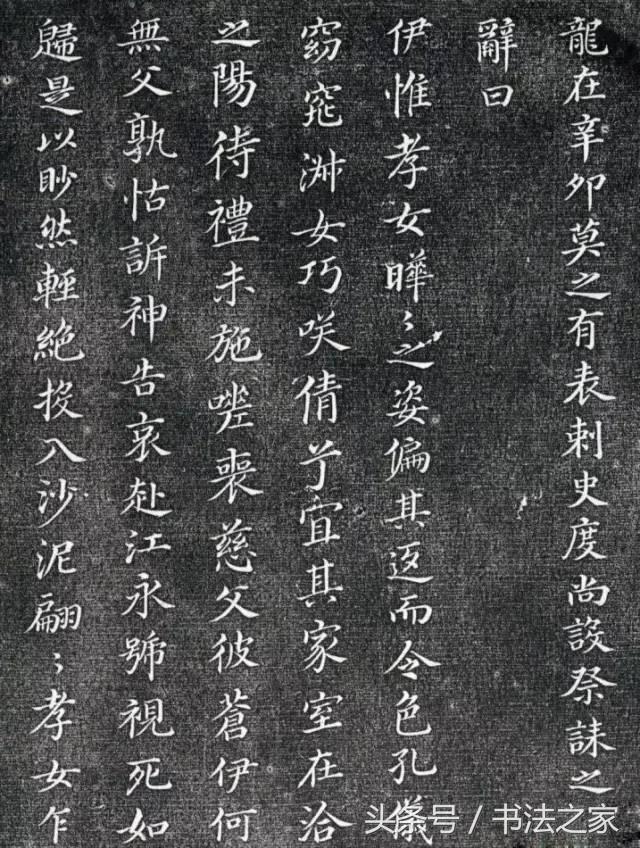 龍在辛卯莫之有表刺史度尚設祭誄之
辭曰
伊惟孝女曄〻之姿偏其返而令色孔儀
窈窕淑女巧咲倩兮宜其家室在洽
之陽待禮未施嗟喪慈父彼蒼伊何
無父孰怙訴神告哀赴江永號視死如
歸是以眇然輕絕投入沙泥翩〻孝女乍
头条号 / 书法之家